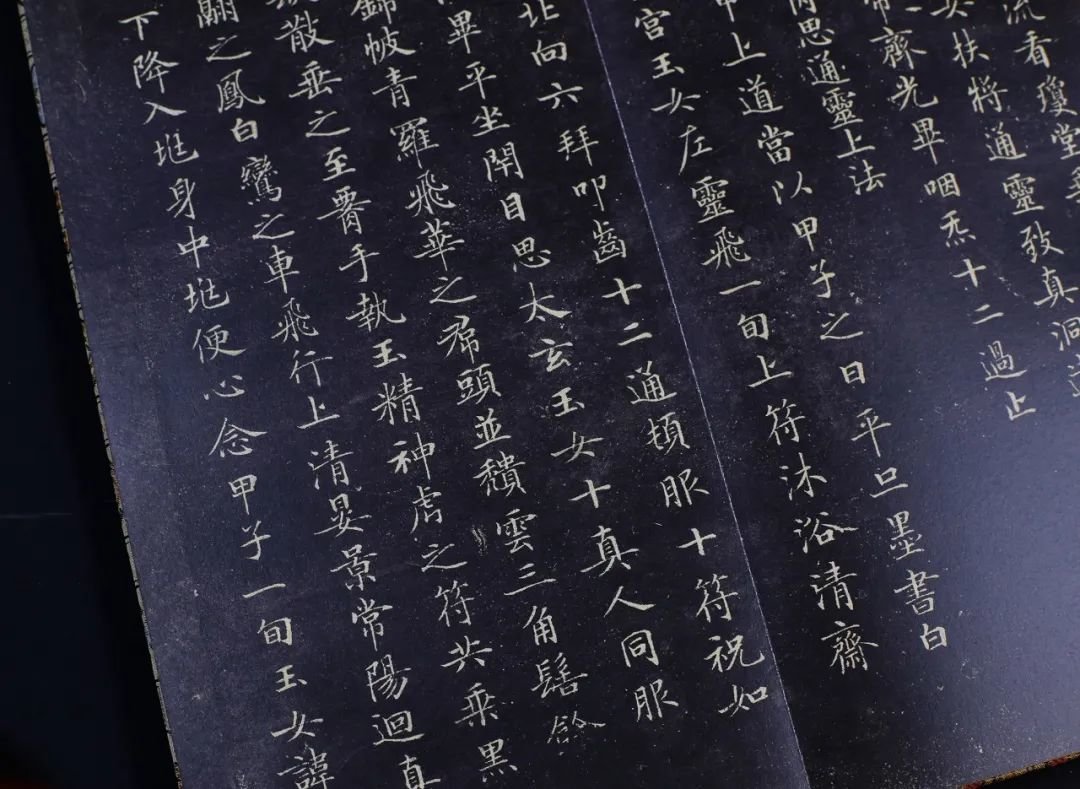 流看瓊堂
女扶將通靈致真洞達
常齊光畢咽炁十二過止
思通靈上法
甲上道當以甲子之日平旦墨書白
宮玉女左靈飛一旬上符沐浴清齋
北向六拜叩齒十二通頓服十符祝如
畢平坐閇目思太玄玉女十真人同服
錦帔青羅飛華之帬頭並穨雲三角髻餘
散垂之至要手執玉精神虎之符共乘黑
翮之鳳白鸞之車飛行上清晏景常陽迴真
下降入垗身中垗便心念甲子一旬玉女諱